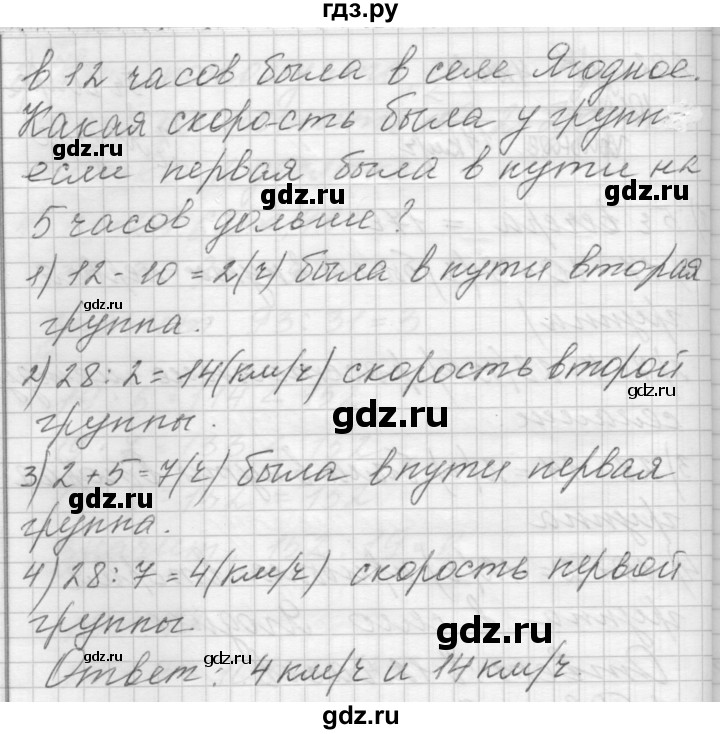 гдз.ру
в 12 часов была в селе Ягодное.
Какая скорость была у групп
если первая была в пути на
gdz.ru gdz.ru
5 часов дольше?
1) 12 - 10 = 2(ч) была в пути вторая
gdz.ru
группа.
2) 28 : 2 = 14(км/ч) скорость второй
gdz.ru
группы.
gdz.ru
3) 2 + 5 = 7(ч) была в пути первая
gdz.ru
группа.
4) 28 : 7 = 4(км/ч) скорость первой
группы
gdz.ru
Ответ: 4 км/ч и 14 км/ч.
gdz.ru gdz.ru
gdz.ru